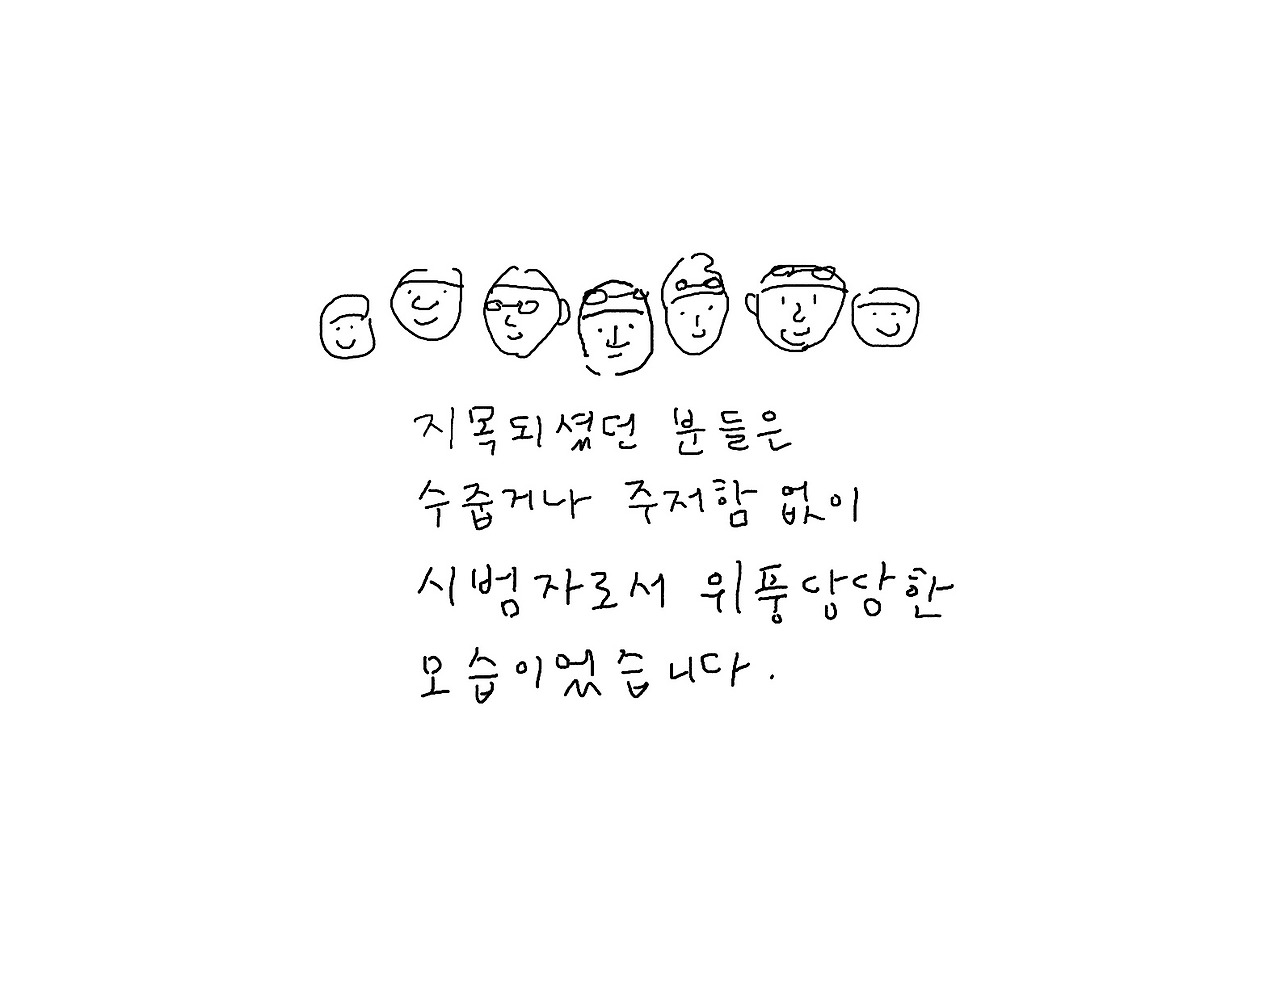 지목되셨던 분들은
수줍거나 주저함 없이
시범자로서 위풍당당한
모습이었습니다.